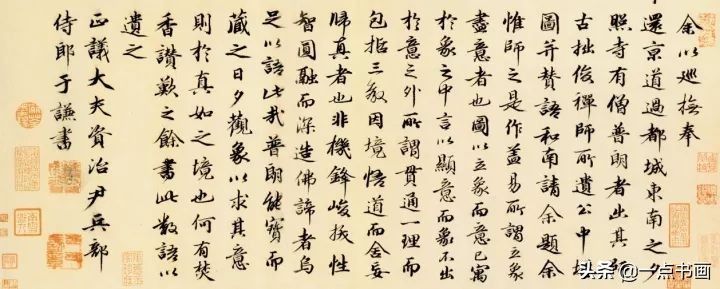 余以巡撫奉
還京道過都城東南之夕
照寺有僧普朗者出其師
古拙俊禪師所遺公中塔
圖并贊語和南請余題余
惟師之是作蓋易所謂立象
盡意者也圖以立象而意已寓
於象之中言以顯意而象不出
於意之外所謂貫通一理而
包括三教因境悟道而舍妄
歸真者也非機鋒峻拔性
智圓融而深造佛諦者烏
足以語此哉普朗能寶而
藏之日夕觀象以求其意
則於真如之境也何有焚
香讚歎之餘書此數語以
遺之
正議大夫資治尹兵部
侍郎于謙書
头条 @一点书画